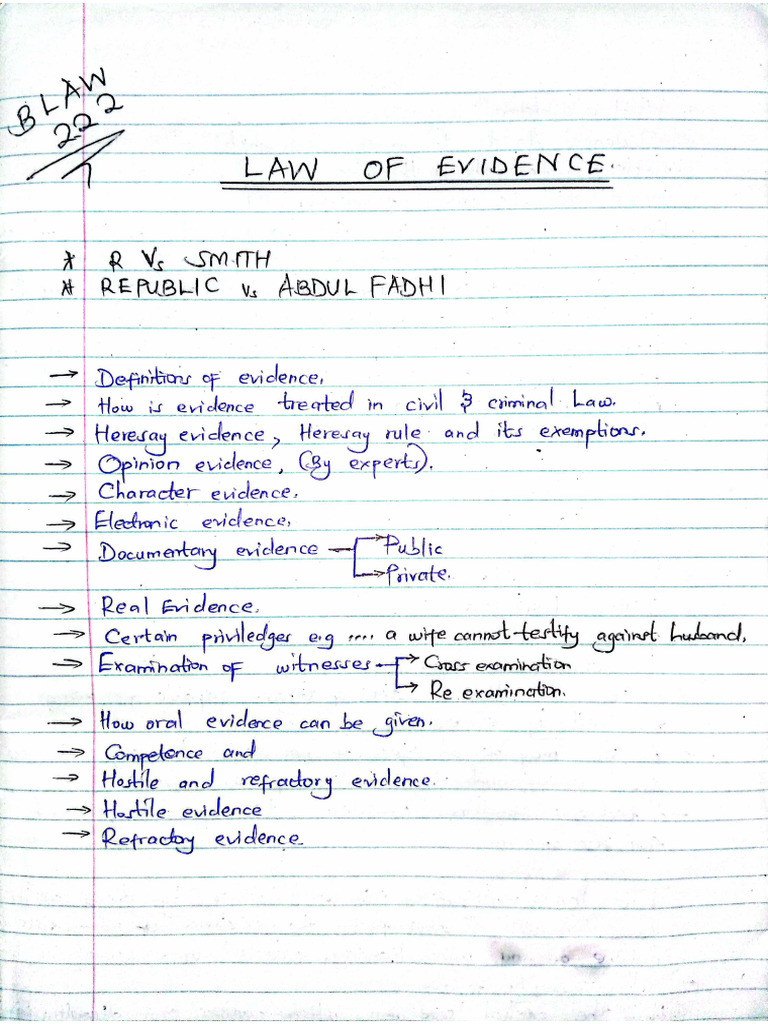 BLAW
222
LAW OF EVIDENCE.
* R Vs SMITH
* REPUBLIC Vs ABDUL FADHI
→ Definitions of evidence.
→ How is evidence treated in civil & criminal Law.
→ Heresay evidence, Heresay rule and its exemptions.
→ Opinion evidence, (By experts).
→ Character evidence.
→ Electronic evidence,
→ Documentary evidence → Public
→ Private.
→ Real Evidence.
→ Certain priviledges e.g .... a wife cannot testify against husband,
→ Examination of witnesses → Cross examination
→ Re examination.
→ How oral evidence can be given.
→ Competence and
→ Hostile and refractory evidence.
→ Hostile evidence
→ Refractory evidence